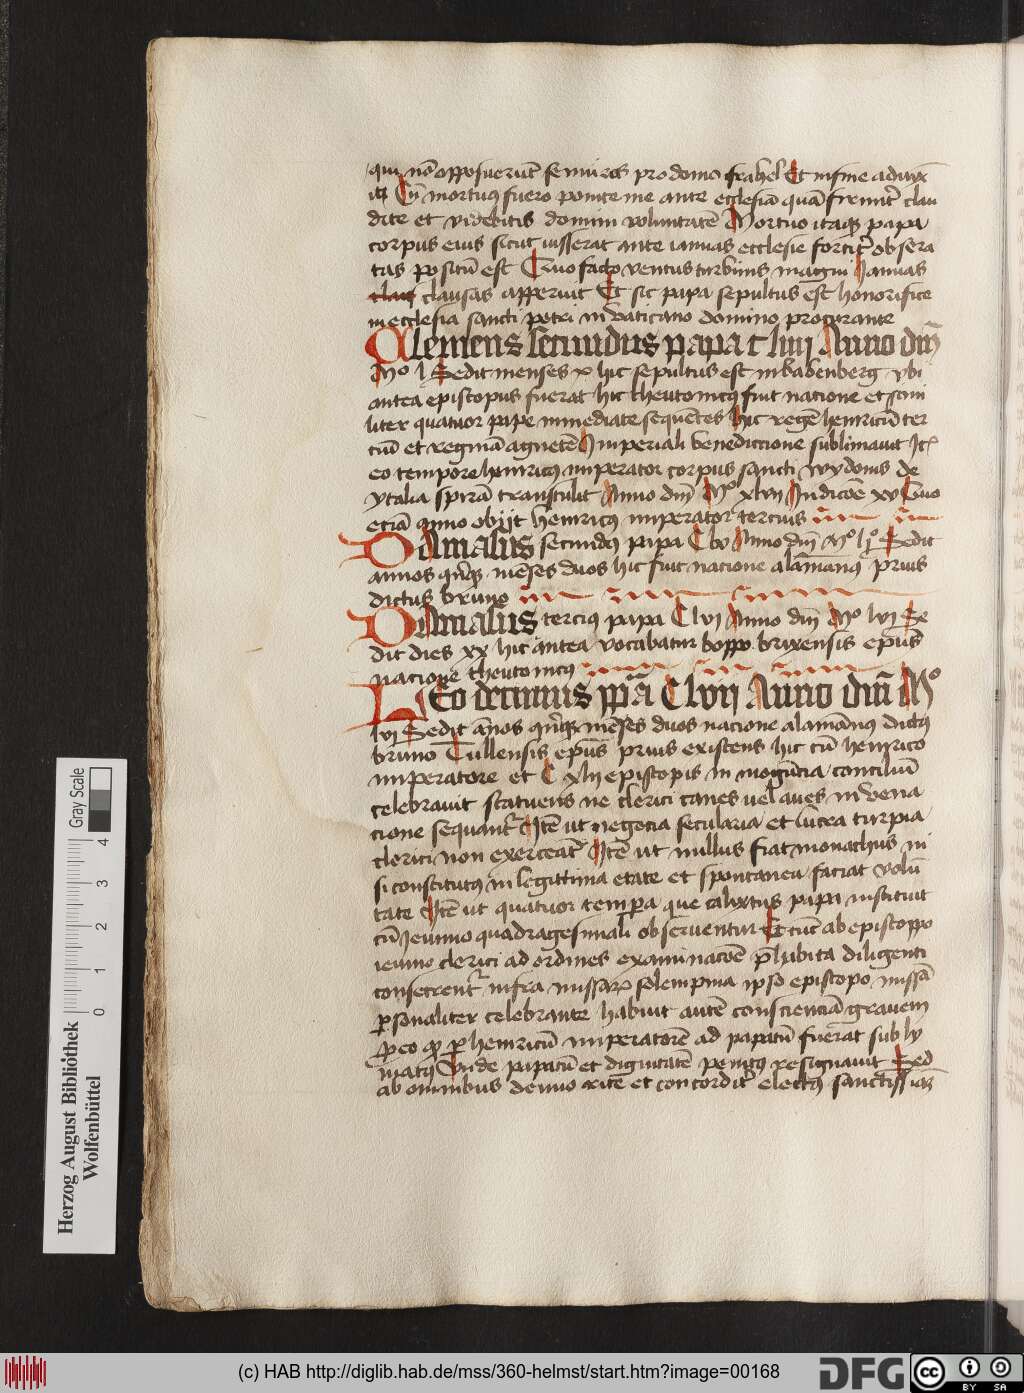 qui nō opposuerūt se muros pro domo israhel Et in fine adiunx
it Cū mortuus fuero ponite me ante ecclesiā quā firmit' clau
dite et videbitis domini voluntatē Mortuo itaqз papa
corpus eius sicut iusserat ante ianuas ecclesie fortit' obsera
tas positū est Quo facto ventus turbinis magni Januas
clausas apperuit Et sic papa sepultus est honorifice
in ecclesia sancti petri in vaticano domino procurante
Clemens secundus papa C liiij Anno dni
Mº l Sedit menses x hic sepultus est in babenberg vbi
antea episcopus fuerat hic theutonicꝰ fuit natione et simi
liter quatuor pape inmediate sequētes hic regē henricū ter
ciū et reginā agnetē Imperiali benedictione sublimauit Itē
eo tempore henricꝰ imperator corpus sancti wydonis de
ytalia spirā transtulit Anno dni Mº xlvij Indicōe xv Quo
etiā anno obijt henricꝰ imperator tercius
Damasus secundꝰ papa C lv Anno dni Mº lj Sedit
annos qnqз mēses duos hic fuit natione alamanꝰ prius
dictus bruno
Damasus terciꝰ papa C lvj Anno dni Mº lvj Se
dit dies xx hic antea vocabatur boppo brixensis epūs
natione theutonicꝰ
LEo decimus ppa C lvij Anno dni Mº
lvj Sedit ānos qnqз mēses duos natione alamānꝰ dictꝰ
bruno Tullensis epūs prius existens hic cū henrico
imperatore et C xlij episcopis in mogūcia conciliū
celebrauit statuens ne clerici canes uel aues in vena
cione sequant' Itē ut negocia secularia et lucra turpia
clerici non exerceāt Itē ut nullus fiat monachus ni
si constitutꝰ in legittima etate et spontanea faciat volū
tate Itē ut quatuor tempora que calixtus papa instituit
cū Jeiunio quadragesimali obseruentur Et tūc ab episcopo
ieiuno clerici ad ordines examinacōe p̄habita diligenti
consecrent' infra missarꝝ solempnia ipso episcopo missā
ꝑsonaliter celebrante habuit autē conscienciā grauem
ꝓ eo ꝙ ꝑ henricū imperatorē ad papatū fuerat subly
matꝰ Vnde papatū et dignitatē penitꝰ resignauit Sed
ab omnibus denuo rite et concordit' electꝰ

Herzog August Bibliothek
Wolfenbüttel
0 1 2 3 4
Gray Scale
(c) HAB http://diglib.hab.de/mss/360-helmst/start.htm?image=00168
DFG
cc
BY SA